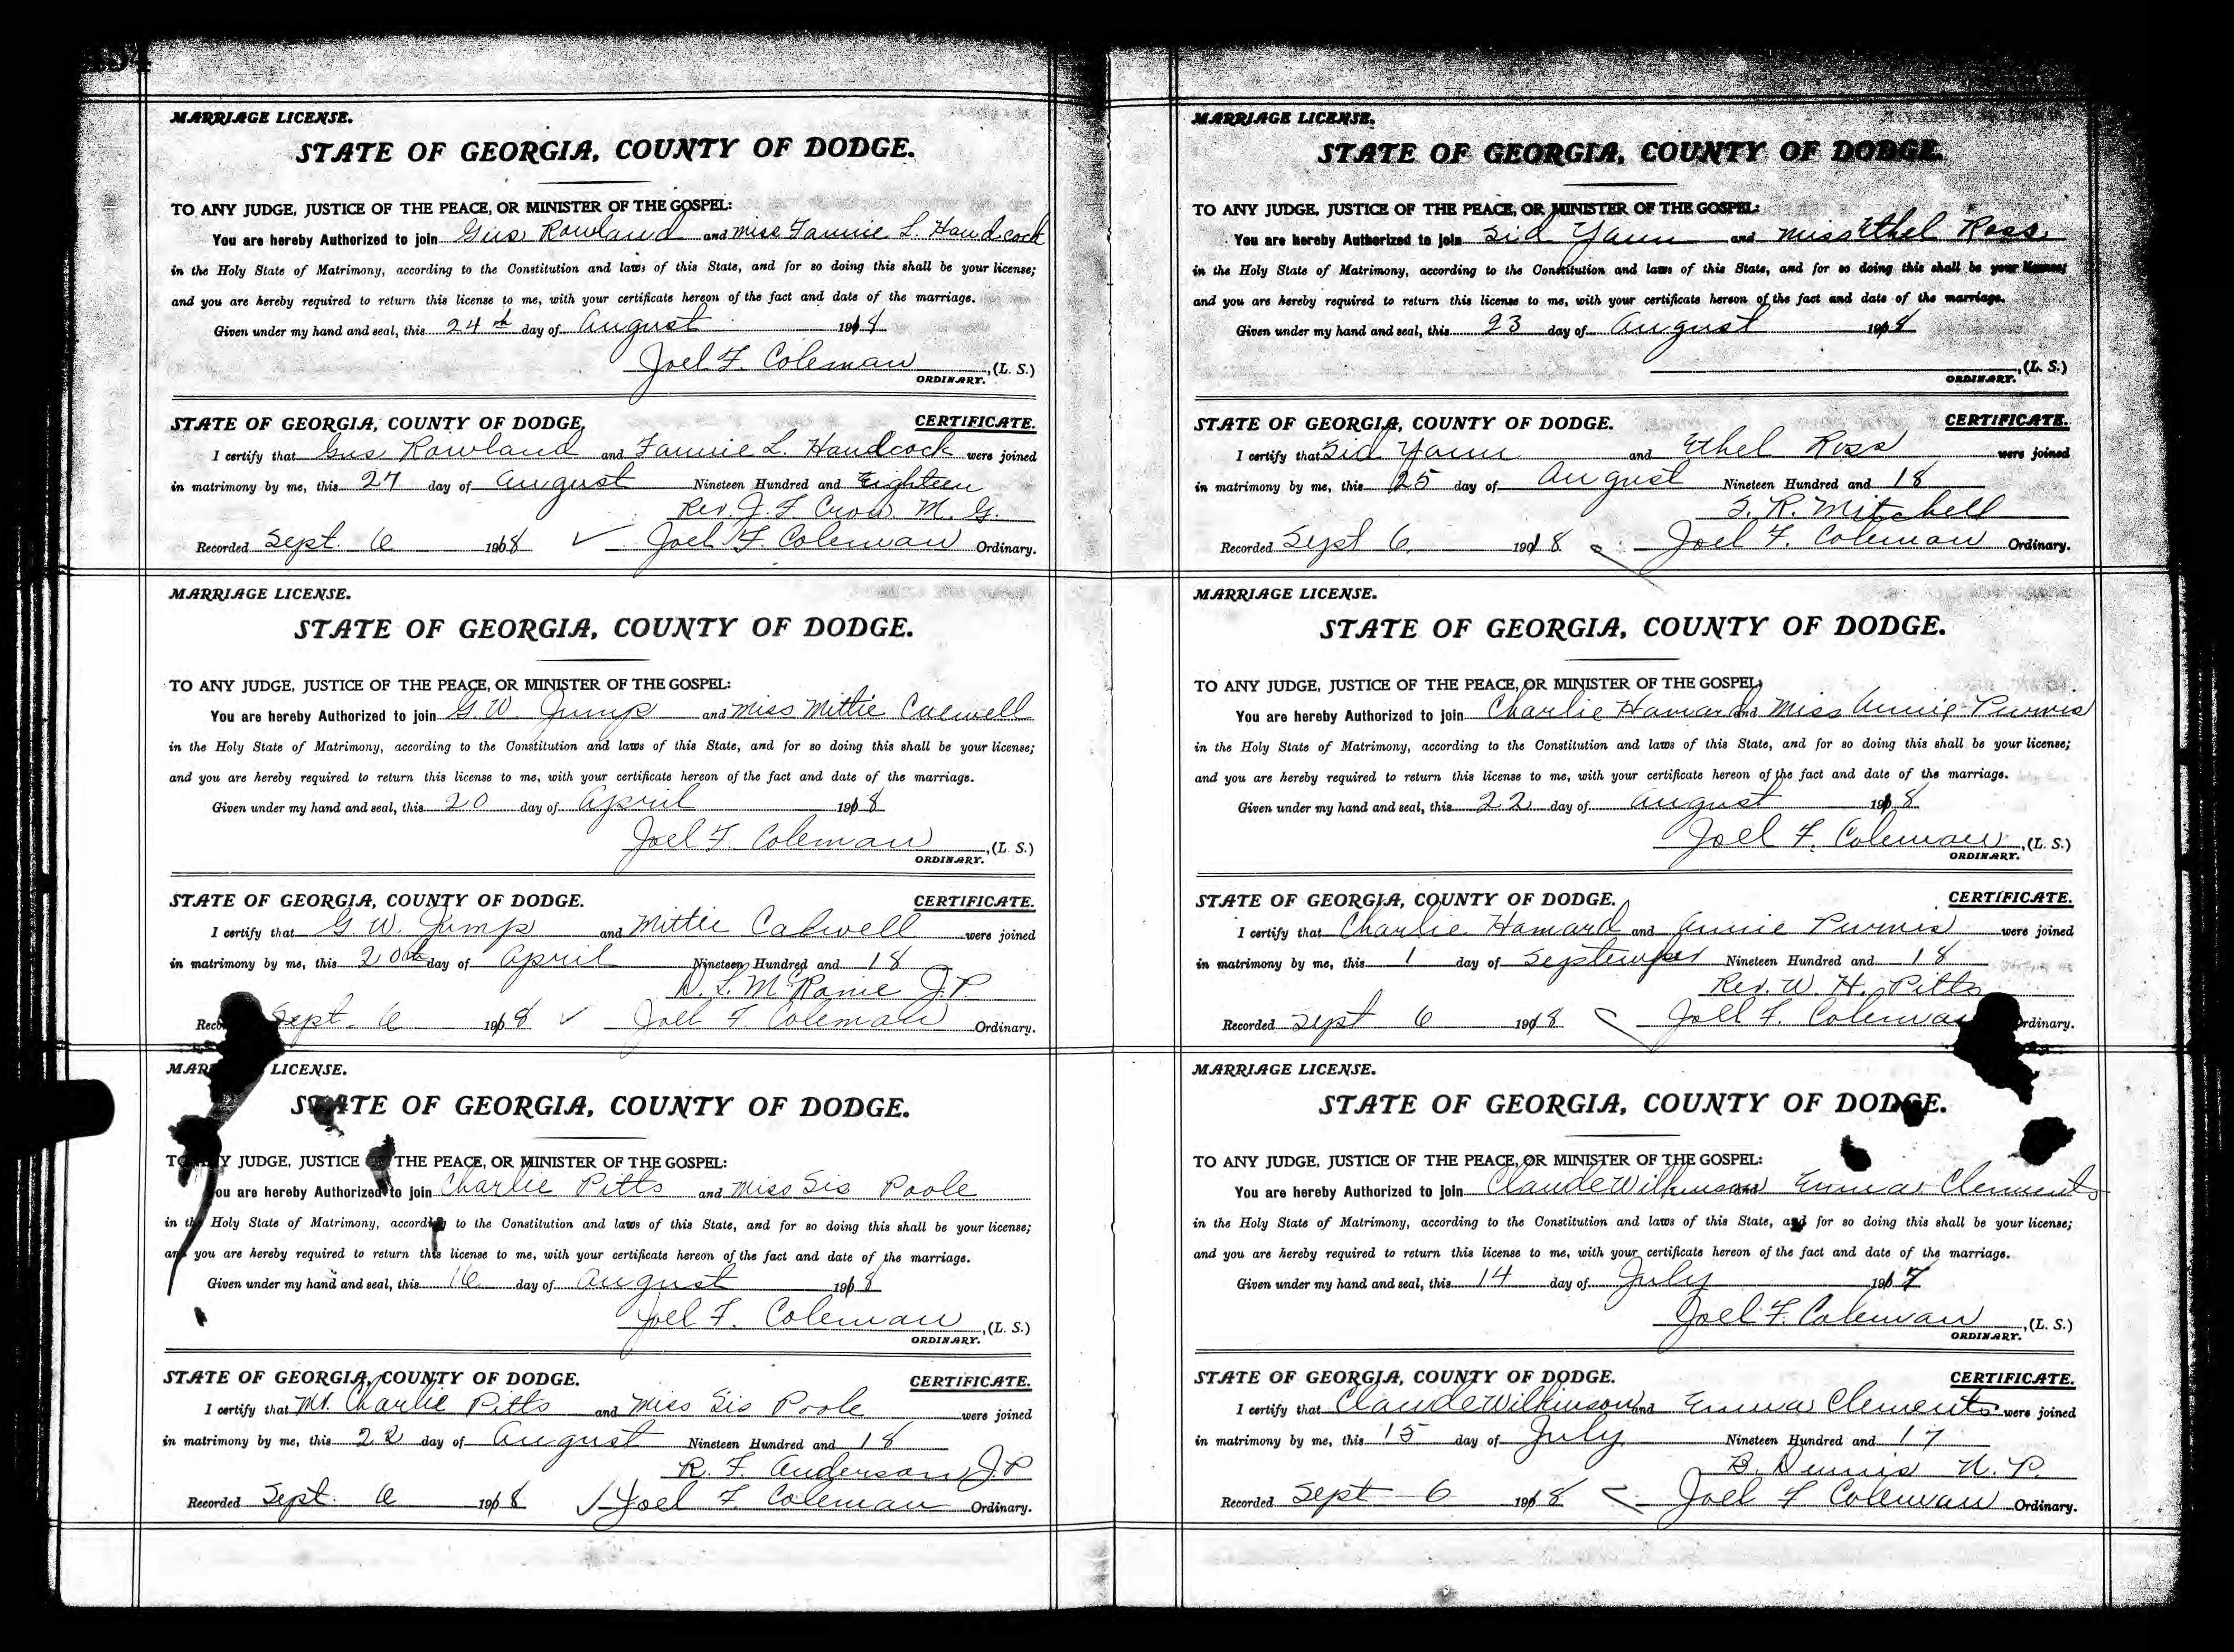 MARRIAGE LICENSE.
STATE OF GEORGIA, COUNTY OF DODGE.
TO ANY JUDGE, JUSTICE OF THE PEACE, OR MINISTER OF THE GOSPEL:
You are hereby Authorized to join Gus Rowland and miss Fannie L. Handcock
in the Holy State of Matrimony, according to the Constitution and laws of this State, and for so doing this shall be your license;
and you are hereby required to return this license to me, with your certificate hereon of the fact and date of the marriage.
Given under my hand and seal, this 24th day of August 1918
Joel F. Coleman, (L. S.)
ORDINARY.
STATE OF GEORGIA, COUNTY OF DODGE, CERTIFICATE.
I certify that Gus Rowland and Fannie L. Handcock were joined
in matrimony by me, this 27 day of August Nineteen Hundred and Eighteen
Rev. J. F. Crow M. G.
Recorded Sept. 6 1918 Joel F. Coleman Ordinary.
MARRIAGE LICENSE.
STATE OF GEORGIA, COUNTY OF DODGE.
TO ANY JUDGE, JUSTICE OF THE PEACE, OR MINISTER OF THE GOSPEL:
You are hereby Authorized to join G. W. Jump and miss Mittie
in the Holy State of Matrimony, according to the Constitution and laws of this State, and for so doing this shall be your license;
and you are hereby required to return this license to me, with your certificate hereon of the fact and date of the marriage.
Given under my hand and seal, this 20 day of April 1918
Joel F. Coleman, (L. S.)
ORDINARY.
STATE OF GEORGIA, COUNTY OF DODGE. CERTIFICATE.
I certify that G. W. Jump and Mittie were joined
in matrimony by me, this 20th day of April Nineteen Hundred and 18
D. L. McRanie J. P.
Sept. 6 1918 Joel F Coleman Ordinary.
MARRIAGE LICENSE.
STATE OF GEORGIA, COUNTY OF DODGE.
TO ANY JUDGE, JUSTICE OF THE PEACE, OR MINISTER OF THE GOSPEL:
You are hereby Authorized to join Charlie Pitts and miss Sis Poole
in the Holy State of Matrimony, according to the Constitution and laws of this State, and for so doing this shall be your license;
and you are hereby required to return this license to me, with your certificate hereon of the fact and date of the marriage.
Given under my hand and seal, this 16 day of August 1918
Joel F. Coleman, (L. S.)
ORDINARY.
STATE OF GEORGIA, COUNTY OF DODGE. CERTIFICATE.
I certify that Mr. Charlie Pitts and Miss Sis Poole were joined
in matrimony by me, this 22 day of August Nineteen Hundred and 18
R. F. Anderson J.P.
Recorded Sept. 6 1918 Joel F Coleman Ordinary.
MARRIAGE LICENSE.
STATE OF GEORGIA, COUNTY OF DODGE.
TO ANY JUDGE, JUSTICE OF THE PEACE, OR MINISTER OF THE GOSPEL:
You are hereby Authorized to join Sid Yawn and miss Ethel Ross
in the Holy State of Matrimony, according to the Constitution and laws of this State, and for so doing this shall be your license;
and you are hereby required to return this license to me, with your certificate hereon of the fact and date of the marriage.
Given under my hand and seal, this 23 day of August 1918
, (L. S.)
ORDINARY.
STATE OF GEORGIA, COUNTY OF DODGE. CERTIFICATE.
I certify that Sid Yawn and Ethel Ross were joined
in matrimony by me, this 25 day of August Nineteen Hundred and 18
S. R. Mitchell
Recorded Sept 6 1918 Joel F. Coleman Ordinary.
MARRIAGE LICENSE.
STATE OF GEORGIA, COUNTY OF DODGE.
TO ANY JUDGE, JUSTICE OF THE PEACE, OR MINISTER OF THE GOSPEL:
You are hereby Authorized to join Charlie and Miss Annie Purvis
in the Holy State of Matrimony, according to the Constitution and laws of this State, and for so doing this shall be your license;
and you are hereby required to return this license to me, with your certificate hereon of the fact and date of the marriage.
Given under my hand and seal, this 22 day of August 1918
Joel F. Coleman, (L. S.)
ORDINARY.
STATE OF GEORGIA, COUNTY OF DODGE. CERTIFICATE.
I certify that Charlie and Annie Purvis were joined
in matrimony by me, this 1 day of September Nineteen Hundred and 18
Rev. W. H. Pitts
Recorded Sept 6 1918 Joel F. Coleman Ordinary.
MARRIAGE LICENSE.
STATE OF GEORGIA, COUNTY OF DODGE.
TO ANY JUDGE, JUSTICE OF THE PEACE, OR MINISTER OF THE GOSPEL:
You are hereby Authorized to join Claude Wilkinson and Emma Clements
in the Holy State of Matrimony, according to the Constitution and laws of this State, and for so doing this shall be your license;
and you are hereby required to return this license to me, with your certificate hereon of the fact and date of the marriage.
Given under my hand and seal, this 14 day of July 1917
Joel F. Coleman, (L. S.)
ORDINARY.
STATE OF GEORGIA, COUNTY OF DODGE. CERTIFICATE.
I certify that Claude Wilkinson and Emma Clements were joined
in matrimony by me, this 15 day of July Nineteen Hundred and 17
B. Dennis N. P.
Recorded Sept 6 1918 Joel F Coleman Ordinary.